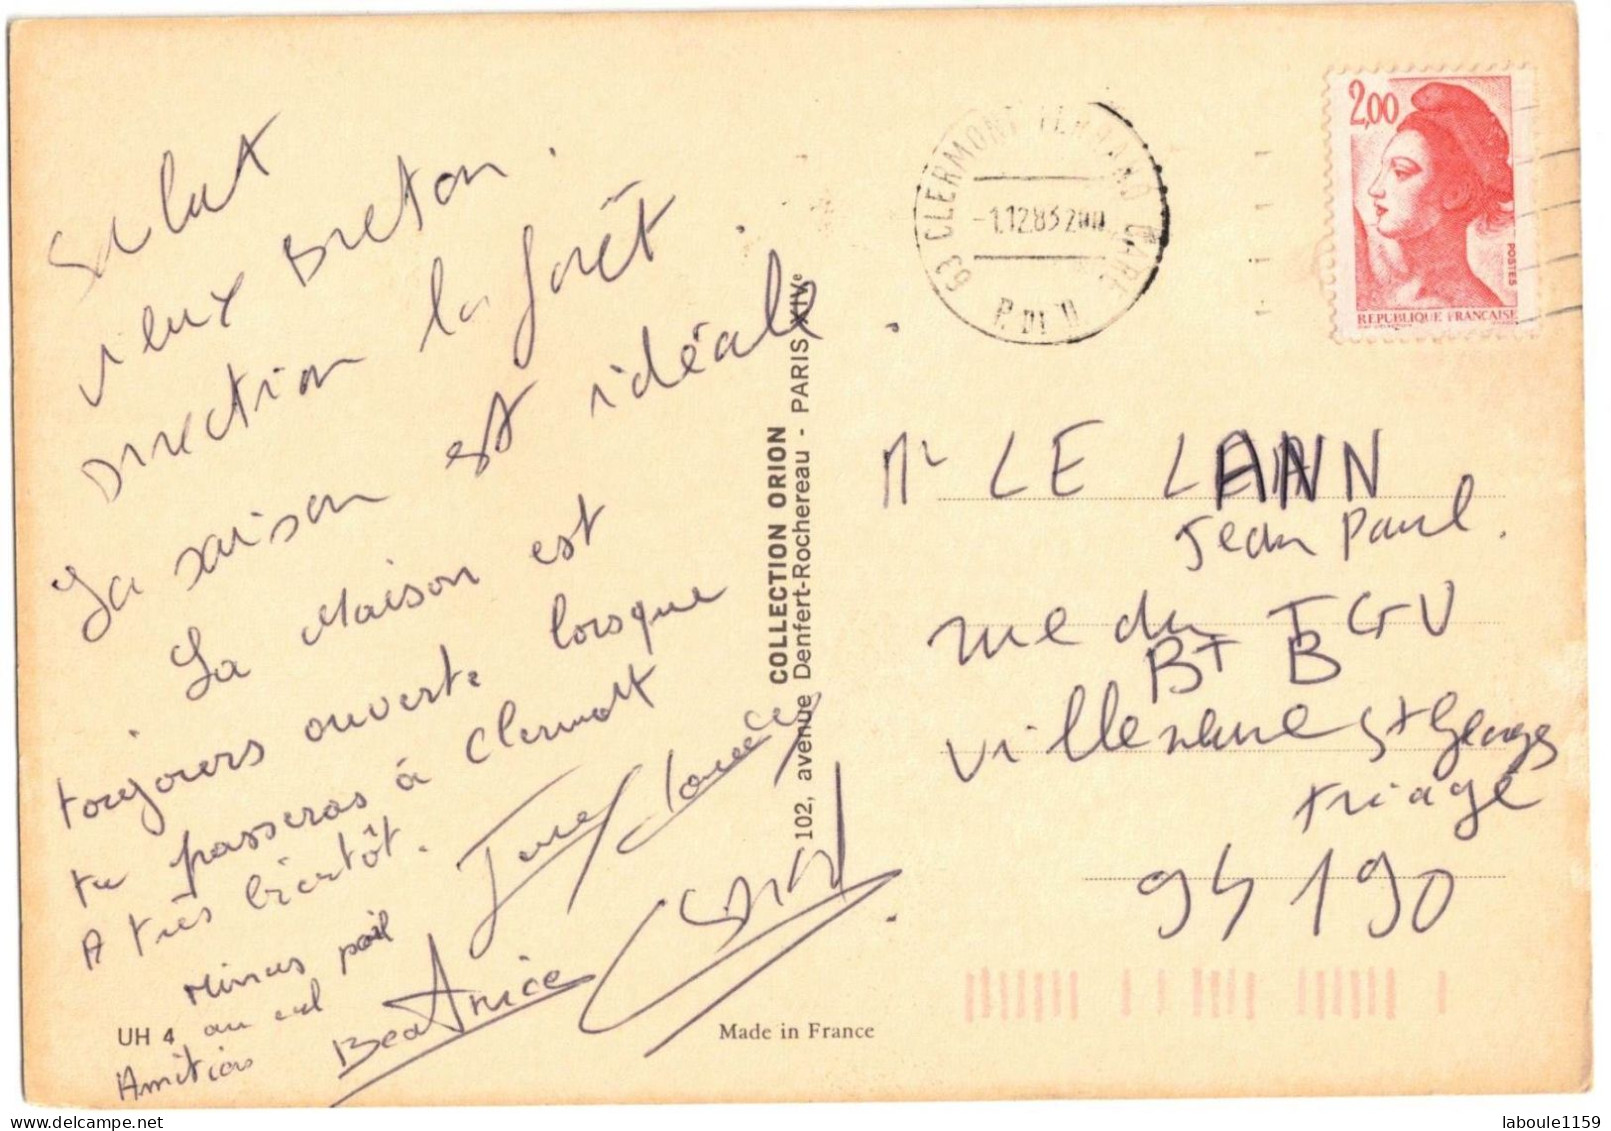 Salut
vieux Breton.
Direction la forêt
La saison est idéale.
La Maison est
toujours ouverte lorsque
tu passeras à Clermont
A très bientôt.
Minus poil
au cul
Amitiés
BeAtrice
UH 4
COLLECTION ORION
102, avenue Denfert-Rochereau - PARIS XIVe
Made in France
63 CLERMONT FERRAND GARE
-1.12.83
P. DE D
2,00
POSTES
REPUBLIQUE FRANCAISE
Mr LE LANN
Jean Paul.
rue du TGV
BT B
Villeneuve St Georges
triage
94 190
laboule1159